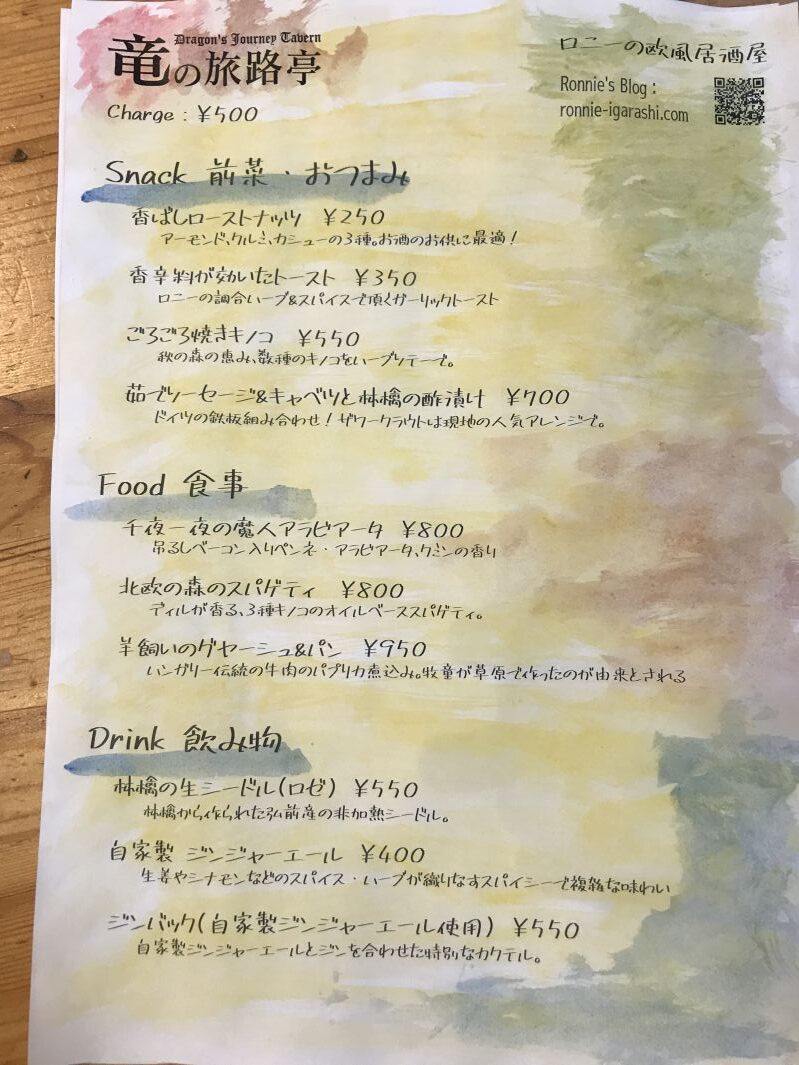 Dragon's Journey Tavern
竜の旅路亭
Charge : ¥500
ロニーの欧風居酒屋
Ronnie's Blog :
ronnie-igarashi.com
Snack 前菜・おつまみ
香ばしローストナッツ ¥250
アーモンド、クルミ、カシューの3種。お酒のお供に最適！
香辛料が効いたトースト ¥350
ロニーの調合ハーブ&スパイスで頂くガーリックトースト
ごろごろ焼きキノコ ¥550
秋の森の恵み、数種のキノコをハーブソテーで。
茹でソーセージ&キャベツと林檎の酢漬け ¥700
ドイツの鉄板組み合わせ！ザワークラウトは現地の人気アレンジで。
Food 食事
千夜一夜の魔人アラビアータ ¥800
吊るしベーコン入りペンネ・アラビアータ、クミンの香り
北欧の森のスパゲティ ¥800
ディルが香る、3種キノコのオイルベーススパゲティ。
羊飼いのグヤーシュ&パン ¥950
ハンガリー伝統の牛肉のパプリカ煮込み。牧童が草原で作ったのが由来とされる
Drink 飲み物
林檎の生シードル(ロゼ) ¥550
林檎から作られた弘前産の非加熱シードル。
自家製 ジンジャーエール ¥400
生姜やシナモンなどのスパイス・ハーブが織りなすスパイシーで複雑な味わい
ジンバック(自家製ジンジャーエール使用) ¥550
自家製ジンジャーエールとジンを合わせた特別なカクテル。